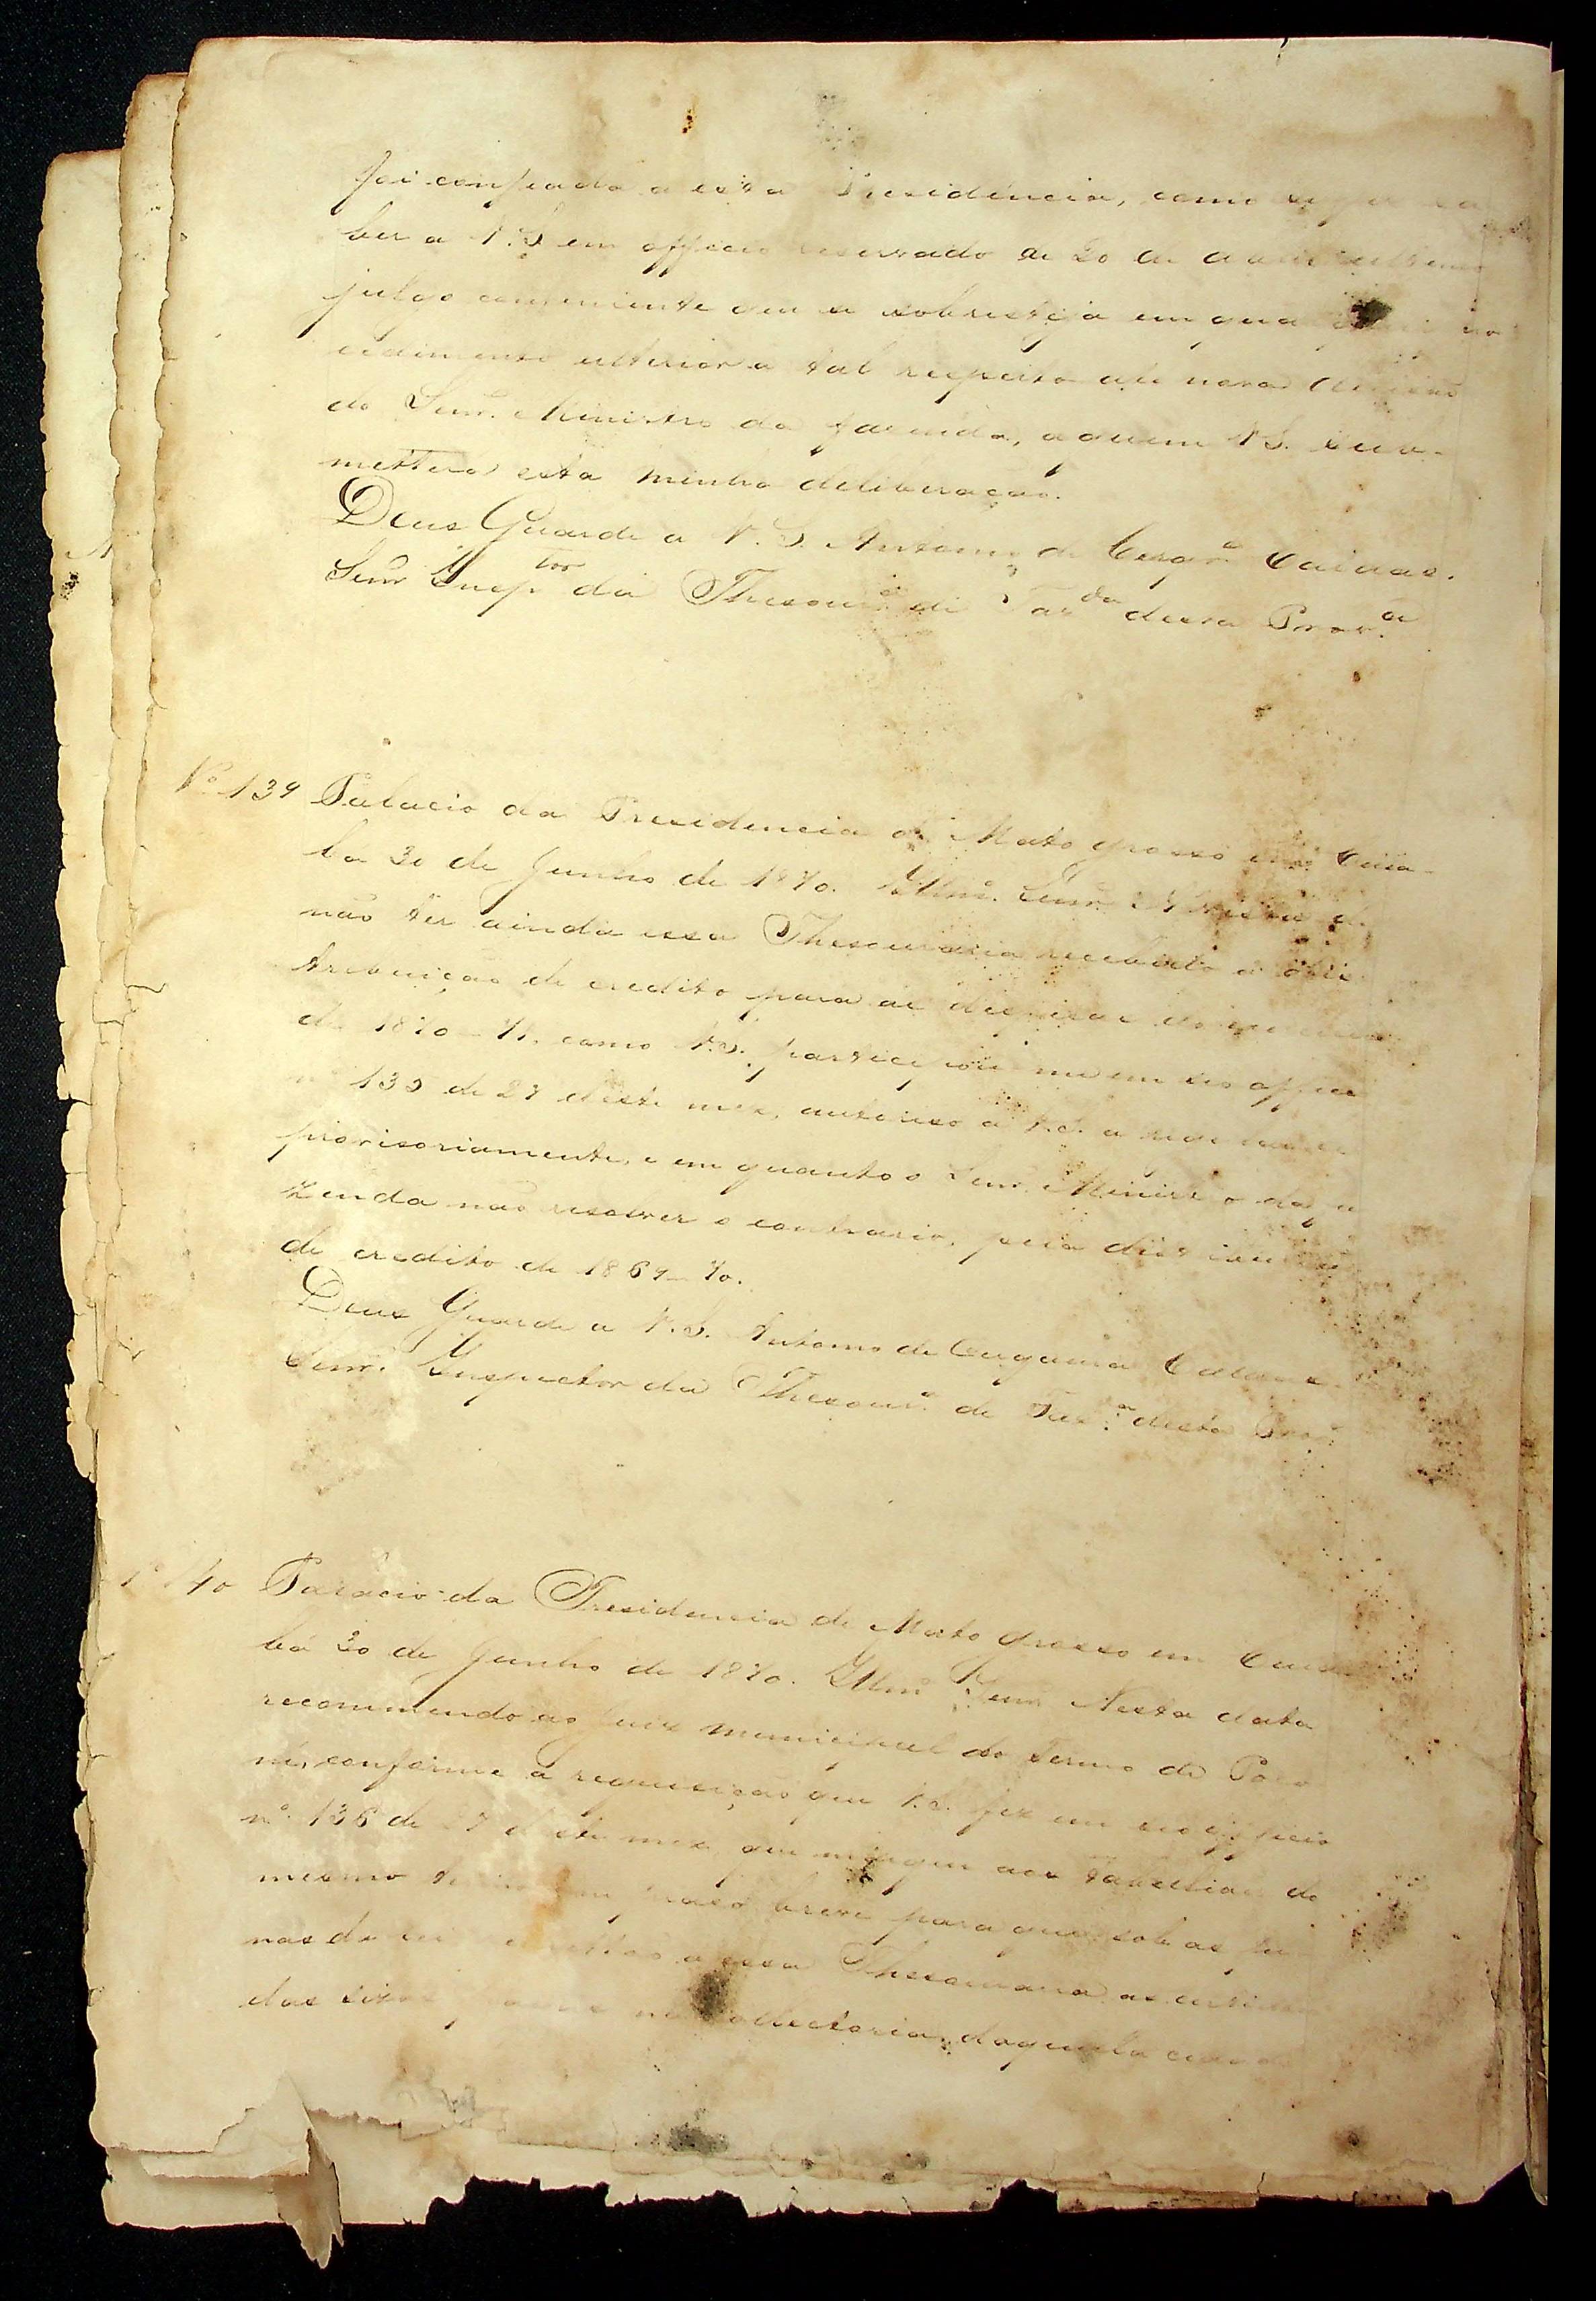 foi confiada a esta Presidencia, como
ber a V.S em officio reservado de 20 de
julgo conveniente que se sobresteja em
cedimento ulterior a tal respeito até nova
do Senr. Ministro da fazenda, a quem V.S.
metterá esta minha deliberação.
Deus Guarde a V.S. Antonio de Cerqra Caldas.
Senr Insptor da Thesoura de Fazda desta Prova
No 139 Palacio da Presidencia de Mato grosso em Cuia-
bá 30 de Junho de 1870. Illmo. Senr.
não ter ainda essa Thesouraria recebido a dis
tribuição de credito para as despesas do
de 1870-71, como V.S. participou me em seo officio
135 de 27 deste mez, autoriso a V.S. a
provisoriamente, e em quanto o Senr. Ministro da fa
zenda não resolver o contrario, pela distribuição
de credito de 1869-70.
Deus Guarde a V.S. Antonio de Cerqueira Caldas
Senr. Inspector da Thesoura de Faza desta Prova
No 140 Palacio da Presidencia de Mato grosso em Cuia
bá 30 de Junho de 1870. Illmo Senr Nesta data
recommendo ao Juiz municipal do termo de Poco
né, conforme a requisição que V.S. fez em seo officio
no. 136 de 27 deste mez, que marque aos tabelliães do
mesmo termo um praso breve para que sob as pe
nas da lei remettão a essa Thesouraria as
das sizas na collectoria daquella